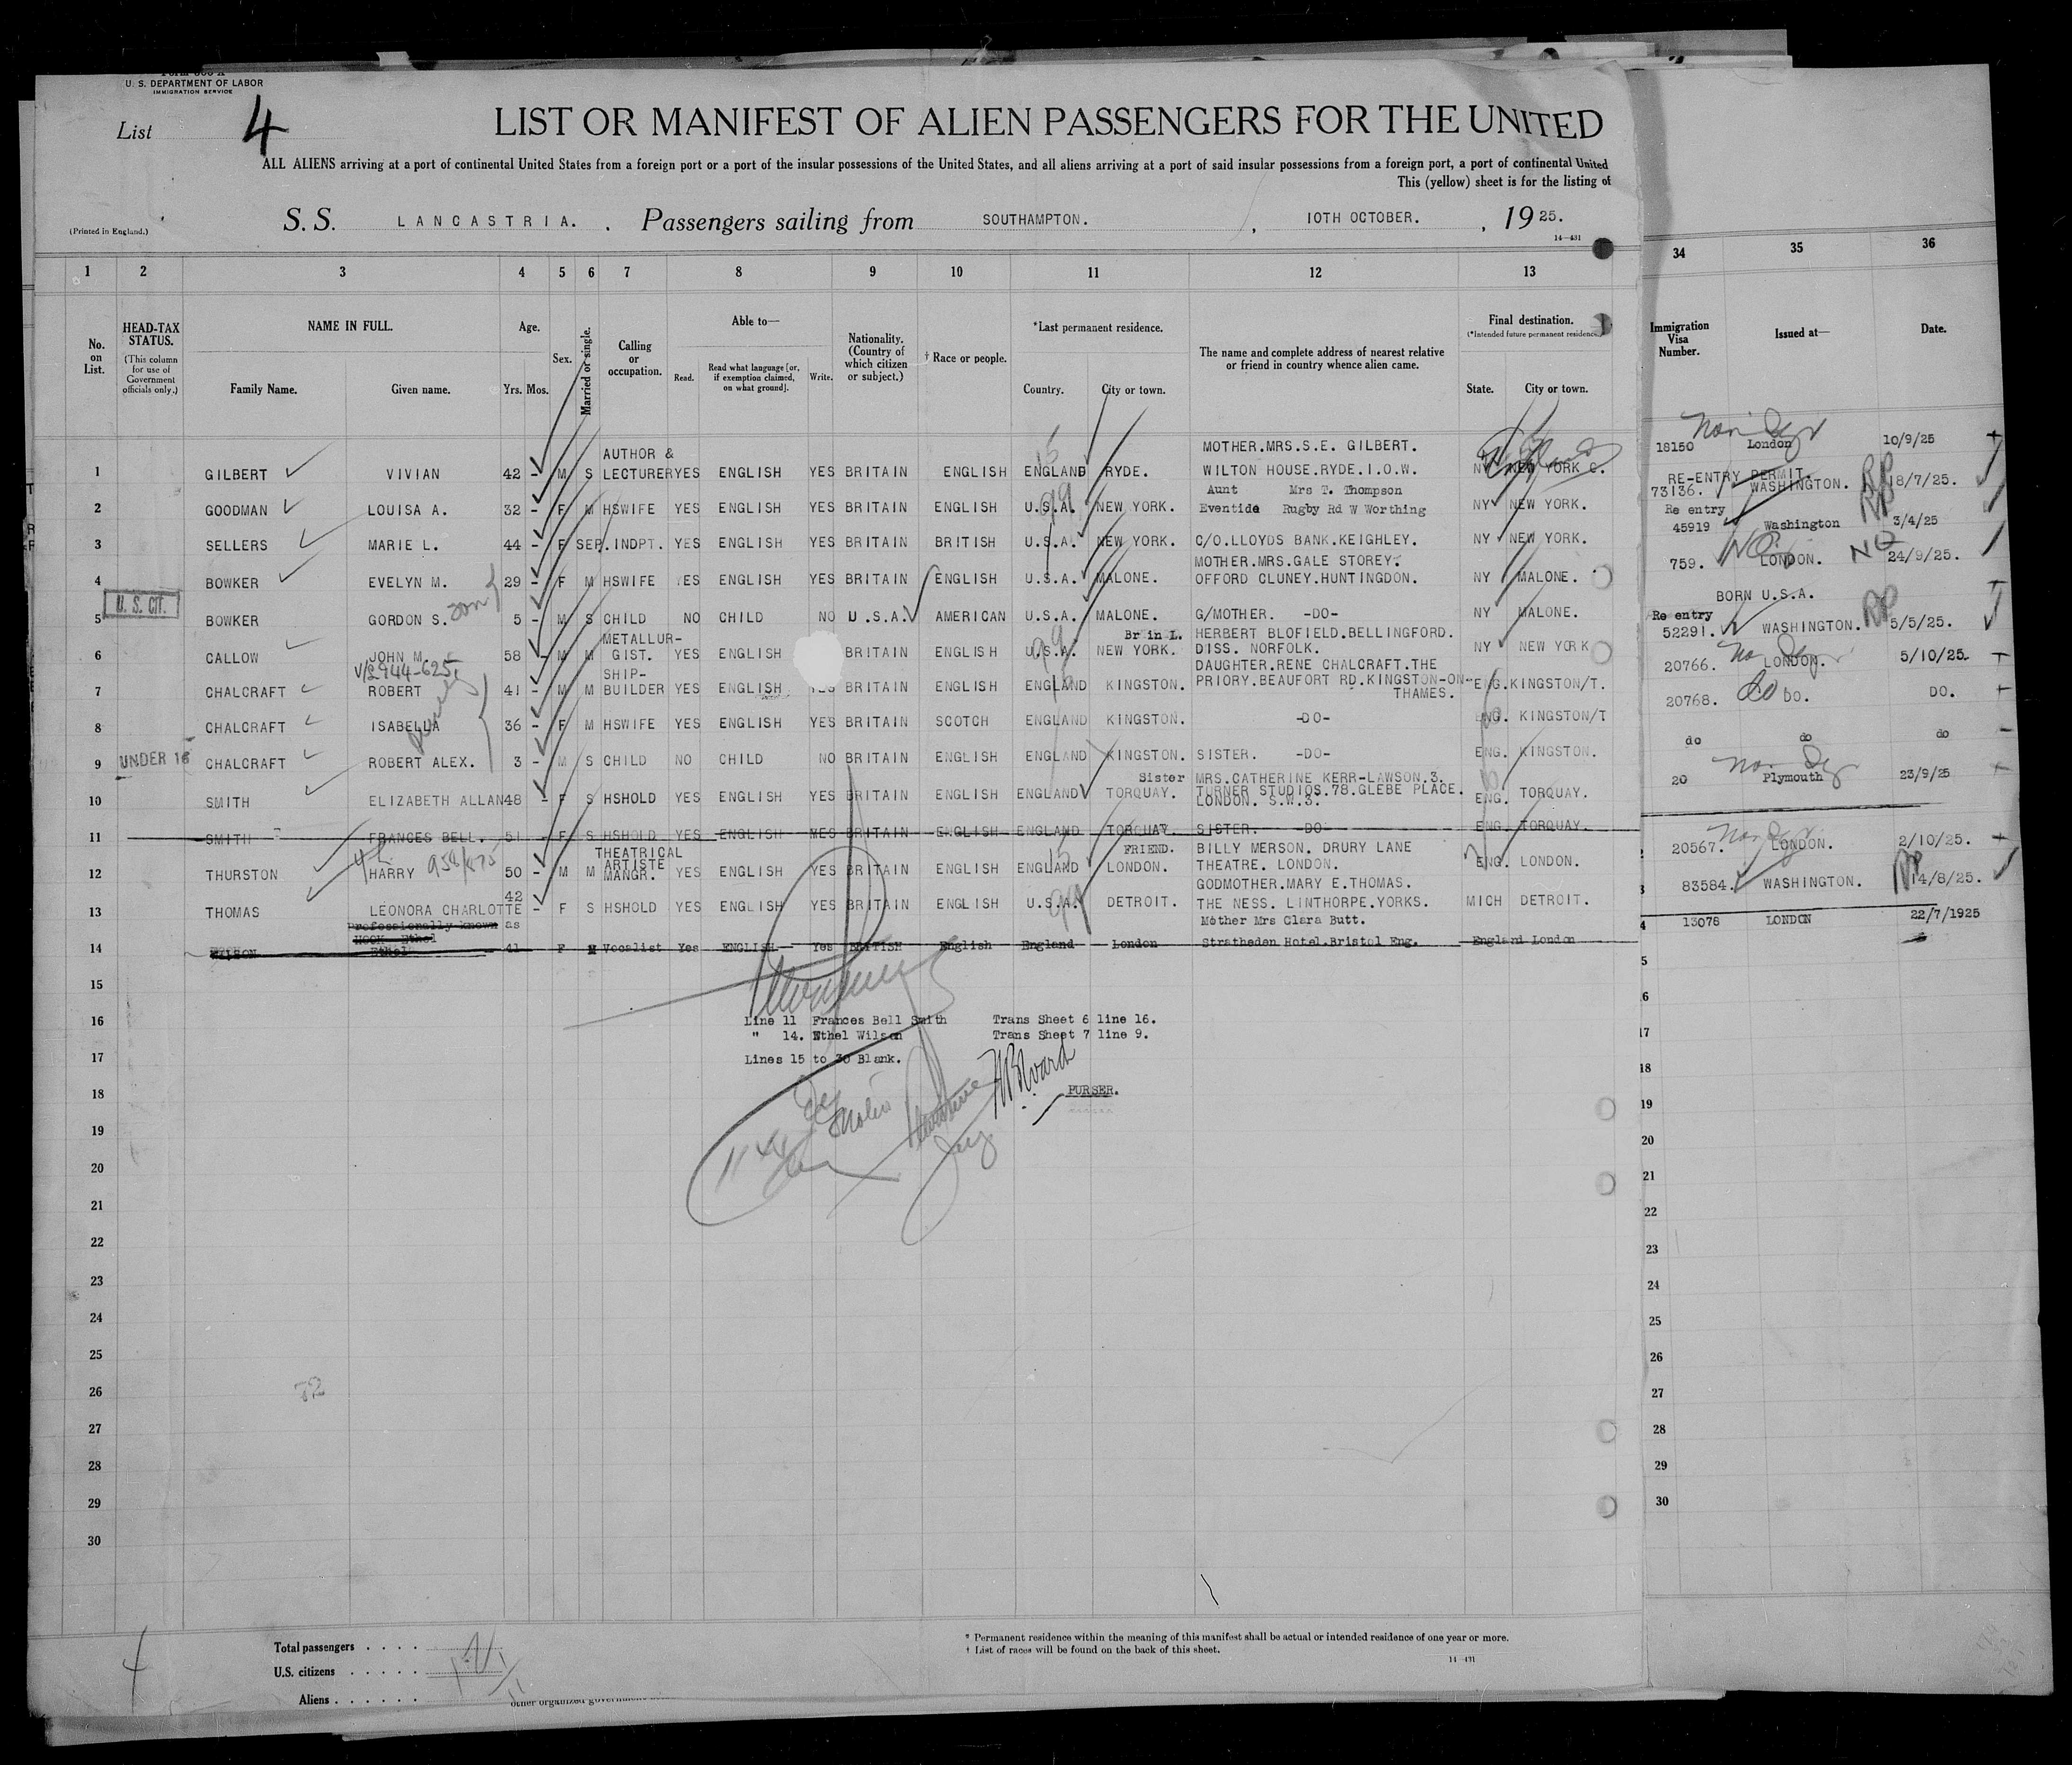 Form 500 A
U. S. DEPARTMENT OF LABOR
IMMIGRATION SERVICE
List 4
LIST OR MANIFEST OF ALIEN PASSENGERS FOR THE UNITED
ALL ALIENS arriving at a port of continental United States from a foreign port or a port of the insular possessions of the United States, and all aliens arriving at a port of said insular possessions from a foreign port, a port of continental United
This (yellow) sheet is for the listing of
(Printed in England.)
S.S. LANCASTRIA. , Passengers sailing from SOUTHAMPTON. , 10TH OCTOBER. , 1925.
14-431
1 2 3 4 5 6 7 8 9 10 11 12 13 34 35 36
No. on List.
HEAD-TAX STATUS. (This column for use of Government officials only.)
NAME IN FULL. Family Name. Given name.
Age. Yrs. Mos.
Sex.
Married or single.
Calling or occupation.
Able to— Read. Read what language [or, if exemption claimed, on what ground]. Write.
Nationality. (Country of which citizen or subject.)
† Race or people.
*Last permanent residence. Country. City or town.
The name and complete address of nearest relative or friend in country whence alien came.
Final destination. (*Intended future permanent residence.) State. City or town.
Immigration Visa Number. Issued at— Date.
1 GILBERT VIVIAN 42 - M S AUTHOR & LECTURER YES ENGLISH YES BRITAIN ENGLISH ENGLAND RYDE. MOTHER.MRS.S.E. GILBERT. WILTON HOUSE.RYDE.I.O.W. NY NEW YORK C. 18150 London 10/9/25
2 GOODMAN LOUISA A. 32 - F M HSWIFE YES ENGLISH YES BRITAIN ENGLISH U.S.A. NEW YORK. Aunt Mrs T. Thompson Eventide Rugby Rd W Worthing NY NEW YORK. RE-ENTRY PERMIT. 73136. WASHINGTON. RP 18/7/25.
3 SELLERS MARIE L. 44 - F SEP. INDPT. YES ENGLISH YES BRITAIN BRITISH U.S.A. NEW YORK. C/O.LLOYDS BANK.KEIGHLEY. NY NEW YORK. Re entry 45919 Washington RP 3/4/25
4 BOWKER EVELYN M. 29 - F M HSWIFE YES ENGLISH YES BRITAIN ENGLISH U.S.A. MALONE. MOTHER.MRS.GALE STOREY. OFFORD CLUNEY.HUNTINGDON. NY MALONE. 759. NQ LONDON. NQ 24/9/25.
U. S. CIT.
5 BOWKER GORDON S. son 5 - M S CHILD NO CHILD NO U.S.A. AMERICAN U.S.A. MALONE. G/MOTHER. -DO- NY MALONE. BORN U.S.A.
6 CALLOW JOHN M. 58 - M M METALLUR- GIST. YES ENGLISH BRITAIN ENGLISH U.S.A. NEW YORK. Br in L. HERBERT BLOFIELD.BELLINGFORD. DISS. NORFOLK. NY NEW YORK Re entry 52291. WASHINGTON. RP 5/5/25.
7 CHALCRAFT ROBERT 41 - M M SHIP- BUILDER YES ENGLISH YES BRITAIN ENGLISH ENGLAND KINGSTON. DAUGHTER.RENE CHALCRAFT.THE PRIORY.BEAUFORT RD.KINGSTON-ON- THAMES. ENG. KINGSTON/T. 20766. LONDON. 5/10/25.
8 CHALCRAFT ISABELLA 36 - F M HSWIFE YES ENGLISH YES BRITAIN SCOTCH ENGLAND KINGSTON. -DO- ENG. KINGSTON/T 20768. DO. DO.
9 UNDER 16 CHALCRAFT ROBERT ALEX. 3 - M S CHILD NO CHILD NO BRITAIN ENGLISH ENGLAND KINGSTON. SISTER. -DO- ENG. KINGSTON. do do do
10 SMITH ELIZABETH ALLAN 48 - F S HSHOLD YES ENGLISH YES BRITAIN ENGLISH ENGLAND TORQUAY. Sister MRS.CATHERINE KERR-LAWSON.3. TURNER STUDIOS.78.GLEBE PLACE. LONDON. S.W.3. ENG. TORQUAY. 20 Plymouth 23/9/25
11 SMITH FRANCES BELL. 51 - F S HSHOLD YES ENGLISH YES BRITAIN ENGLISH ENGLAND TORQUAY. SISTER. -DO- ENG. TORQUAY.
12 THURSTON HARRY 50 - M M THEATRICAL ARTISTE MANGR. YES ENGLISH YES BRITAIN ENGLISH ENGLAND LONDON. FRIEND. BILLY MERSON. DRURY LANE THEATRE. LONDON. ENG. LONDON. 20567. LONDON. 2/10/25.
13 THOMAS LEONORA CHARLOTTE 42 - F S HSHOLD YES ENGLISH YES BRITAIN ENGLISH U.S.A. DETROIT. GODMOTHER.MARY E.THOMAS. THE NESS. LINTHORPE.YORKS. MICH DETROIT. 83584. WASHINGTON. RP 14/8/25.
Professionally known as
HOOK Ethel
14 WILSON Ethel 41 F M Vocalist Yes ENGLISH Yes BRITISH English England London Mother Mrs Clara Butt. Stratheden Hotel.Bristol Eng. England London 13078 LONDON 22/7/1925
15
16 Line 11 Frances Bell Smith Trans Sheet 6 line 16.
" 14. Ethel Wilson Trans Sheet 7 line 9.
17 Lines 15 to 30 Blank.
18 PURSER.
19
20
21
22
23
24
25
26
27
28
29
30
Total passengers . . . .
U.S. citizens . . . . .
Aliens . . . . . .
* Permanent residence within the meaning of this manifest shall be actual or intended residence of one year or more.
† List of races will be found on the back of this sheet.
14-431
4